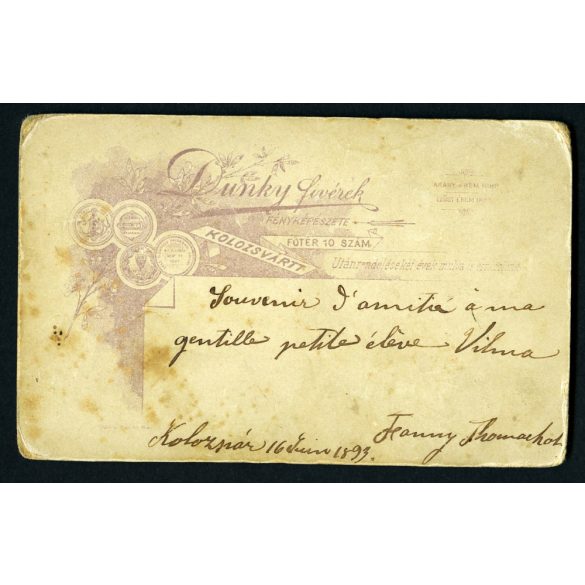 Dunky fivérek
FÉNYKÉPÉSZETE
KOLOZSVÁRTT
FŐTÉR 10 SZÁM
Utánrendeléseket évek mulva is
Souvenir d'amitié à ma
gentille petite élève Vilma
Kolozsvár 16 Juin 1893.
Fanny